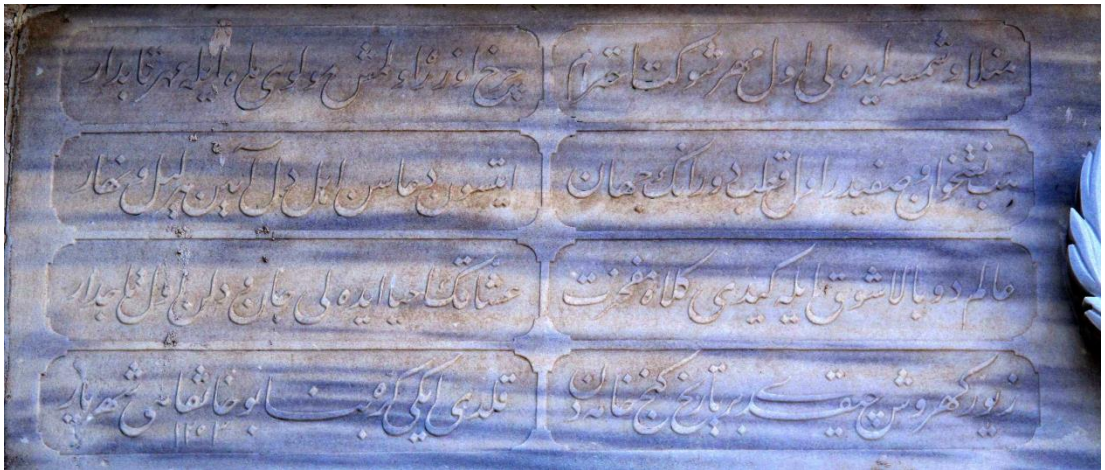 منلای شمسه ایده لی اول مهر شوکت احترام
چرخ اوزره اولمش مولوی ماه ایله مهر تابدار
هب وصفیدر اول قطب دورانک جهان
ایتسون دعاسن اهل دل آیین هر لیل و نهار
عالم دو بالا شوق ایله کیدی کلاه مفخرت
عشاقک احیا ایده لی جان و دلن اول تاجدار
زیور کهروش چیقدی بر تاریخ کنج خانه دن
قلدی ایکی کره بنا بو خانقاهی شهریار